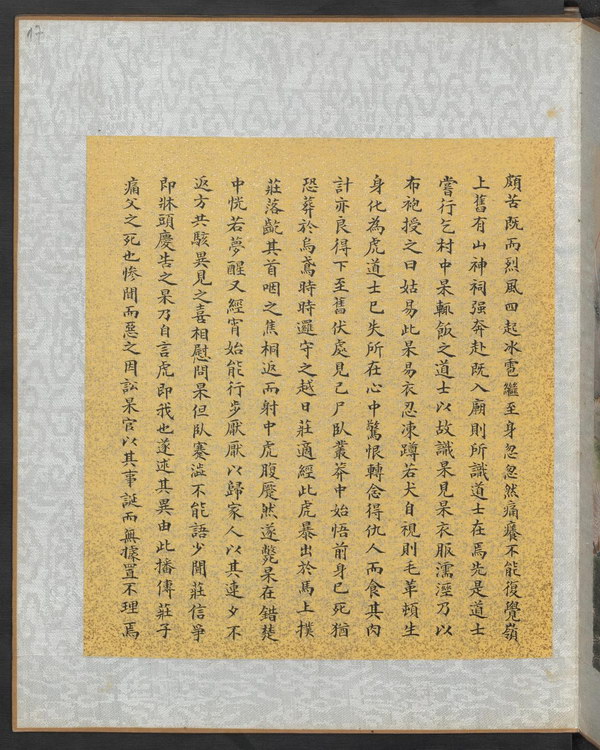 17
頗苦既而烈風四起冰雹繼至身忽忽然痛癢不能復覺嶺
上舊有山神祠强奔赴既入廟則所識道士在焉先是道士
嘗行乞村中杲輒飯之道士以故識杲見杲衣服濡溼乃以
布袍授之曰姑易此杲易衣忍凍蹲若犬自視則毛革頓生
身化為虎道士已失所在心中驚恨轉念得仇人而食其肉
計亦良得下至舊伏處見己尸臥叢莽中始悟前身已死猶
恐葬於烏鳶時時邏守之越日莊適經此虎暴出於馬上撲
莊落齕其首咽之焦桐返而射中虎腹蹷然遂斃杲在錯楚
中恍若夢醒又經宵始能行步厭厭以歸家人以其連夕不
返方共駭異見之喜相慰問杲但臥蹇澁不能語少間莊信爭
即牀頭慶告之杲乃自言虎即我也遂述其異由此播傳莊子
痛父之死也慘聞而惡之因訟杲官以其事誕而無據置不理焉